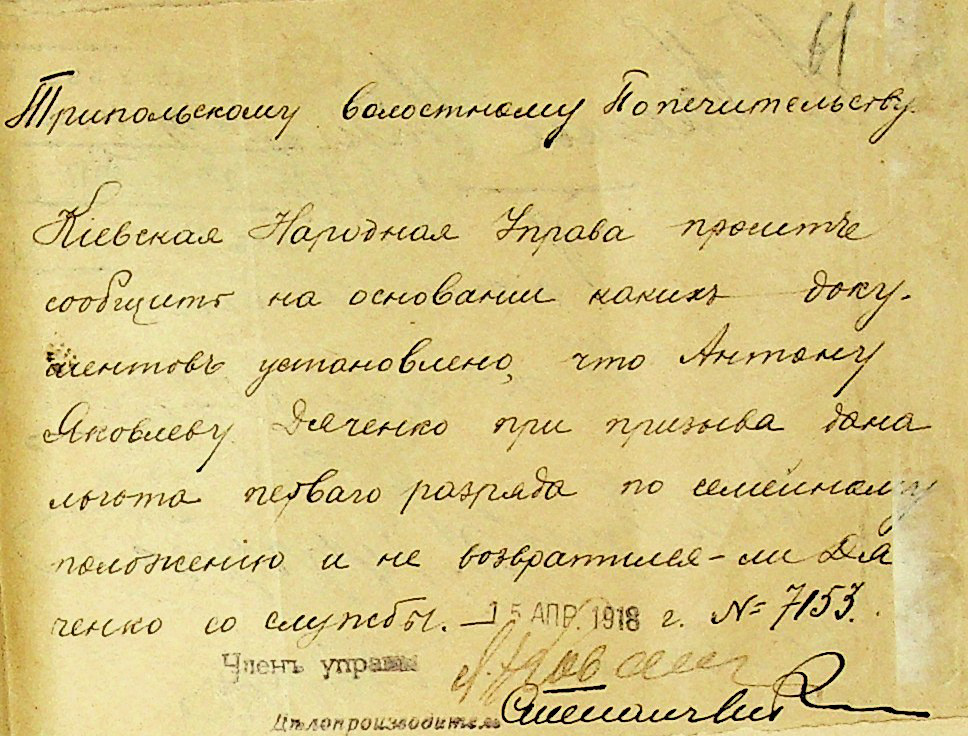 61
Трипольскому волостному Попечительству.
Кіевская Народная Управа просите
сообщить на основании какихъ доку-
ментовъ установлено, что Антону
Яковлеву Дяченко при призыва дана
льгота перваго разряда по семейному
положенію и не возвратился-ли Дя
ченко со службы. 15 АПР. 1918 г. № 7153.
Членъ управы
Дѣлопроизводитель